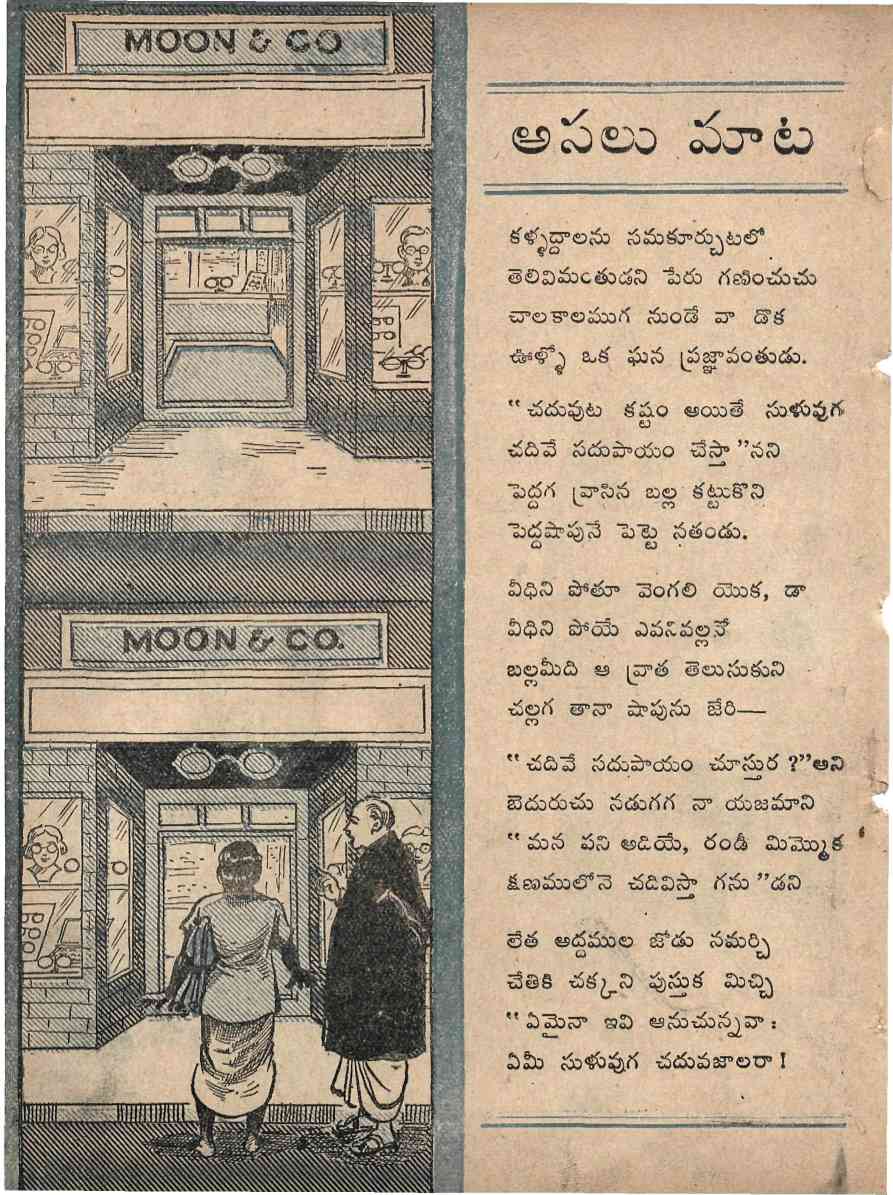 MOON & CO
MOON & CO.
అసలు మాట
కళ్ళద్దాలను సమకూర్చుటలో
తెలివిమంతుడని పేరు గణించుచు
చాలకాలముగ నుండే వా డొక
ఊళ్ళో ఒక ఘన ప్రజ్ఞావంతుడు.
“చదువుట కష్టం అయితే సుళువుగ
చదివే సదుపాయం చేస్తా”నని
పెద్దగ వ్రాసిన బల్ల కట్టుకొని
పెద్దషాపునే పెట్టె నతండు.
వీధిని పోతూ వెంగలి యొక, డా
వీధిని పోయే ఎవనివల్లనో
బల్లమీది ఆ వ్రాత తెలుసుకుని
చల్లగ తానా షాపును జేరి—
“చదివే సదుపాయం చూస్తుర ?”అని
బెదురుచు నడుగగ నా యజమాని
“మన పని అడియే, రండీ మిమ్మొక
క్షణములోనె చదివిస్తా గను”డని
లేత అద్దముల జోడు నమర్చి
చేతికి చక్కని పుస్తక మిచ్చి
“ఏమైనా ఇవి ఆనుచున్నవా :
ఏమీ సుళువుగ చదువజాలరా !